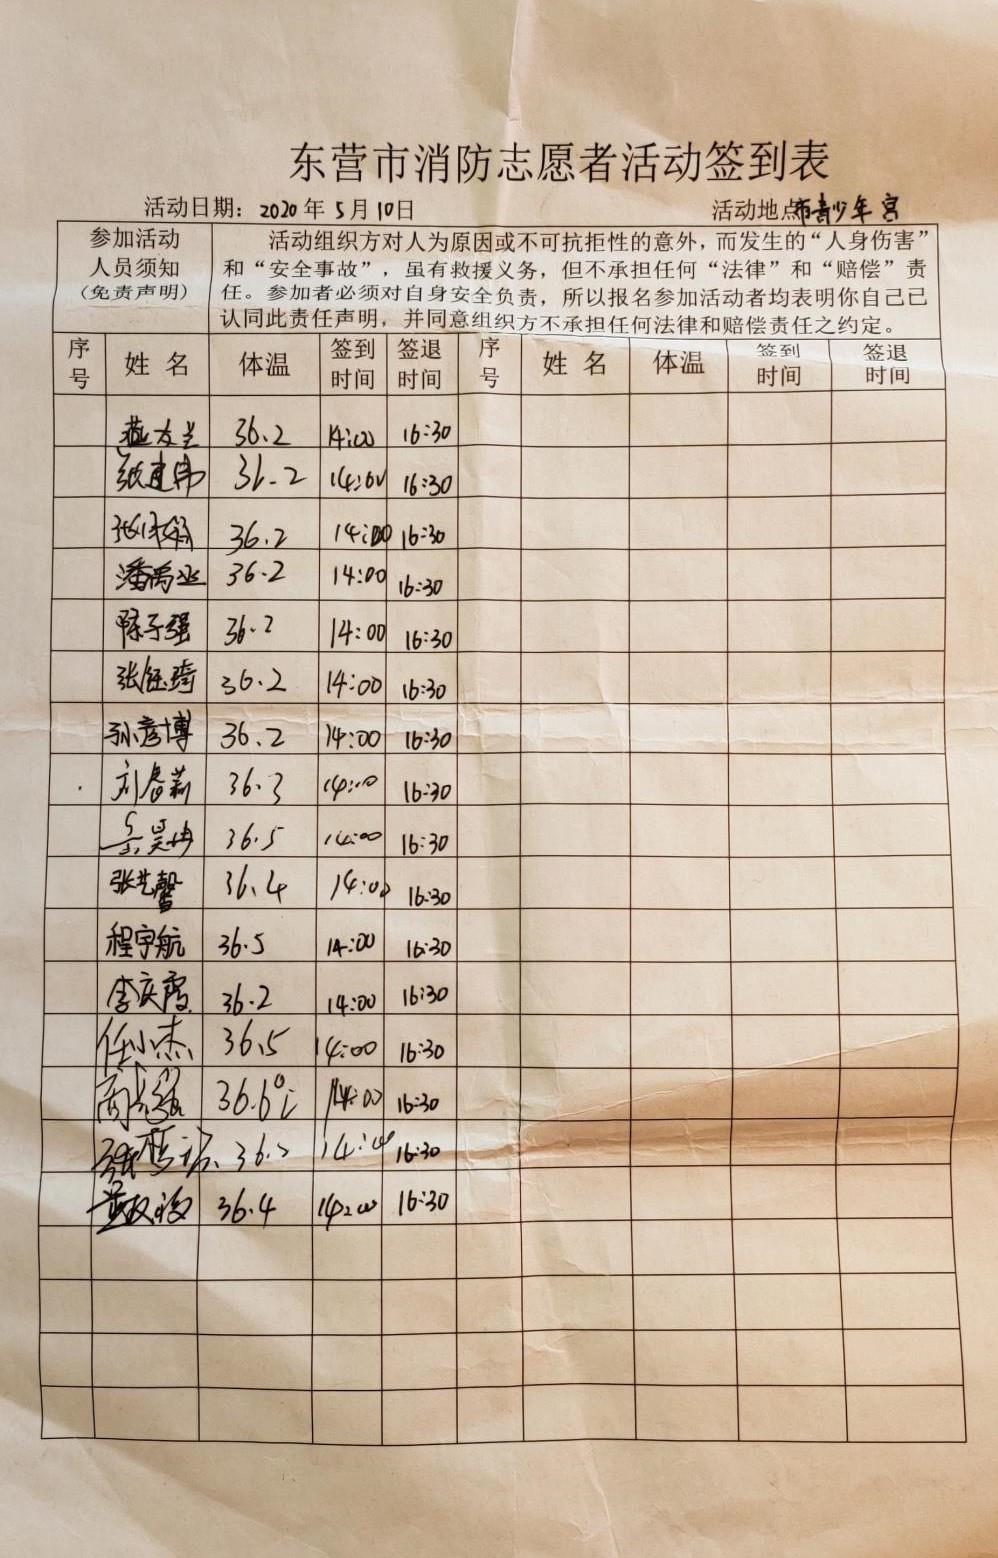 东营市消防志愿者活动签到表
活动日期：2020年5月10日 活动地点市青少年宫
参加活动
人员须知
（免责声明）
活动组织方对人为原因或不可抗拒性的意外，而发生的“人身伤害”
和“安全事故”，虽有救援义务，但不承担任何“法律”和“赔偿”责
任。参加者必须对自身安全负责，所以报名参加活动者均表明你自己已
认同此责任声明，并同意组织方不承担任何法律和赔偿责任之约定。
序号 姓名 体温 签到时间 签退时间 序号 姓名 体温 签到时间 签退时间
36.2 14:00 16:30
张建伟 36.2 14:00 16:30
36.2 14:00 16:30
潘禹丞 36.2 14:00 16:30
陈子强 36.2 14:00 16:30
张钰琦 36.2 14:00 16:30
孙彦博 36.2 14:00 16:30
刘春莉 36.3 14:00 16:30
36.5 14:00 16:30
张艺馨 36.4 14:00 16:30
程宇航 36.5 14:00 16:30
李庆霞 36.2 14:00 16:30
任小杰 36.5 14:00 16:30
36.6℃ 14:00 16:30
36.2 14:00 16:30
36.4 14:00 16:30